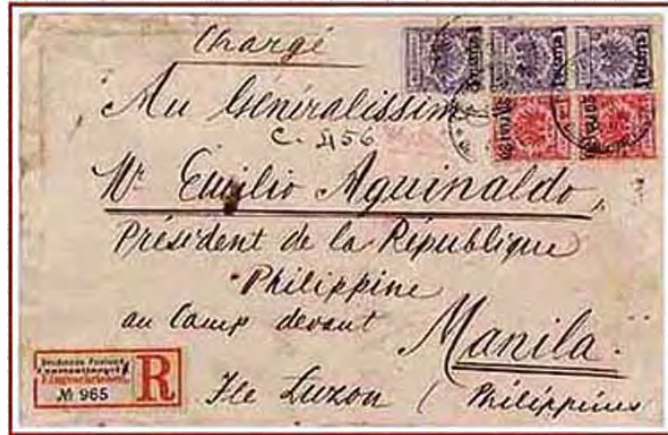 Chargé
Au Généralissime
C. 456
Mr Emilio Aguinaldo,
Président de la République
Philippine
au Camp devant
Manila.
Ile Luzon (Philippines
Eingeschrieben.
R
№ 965